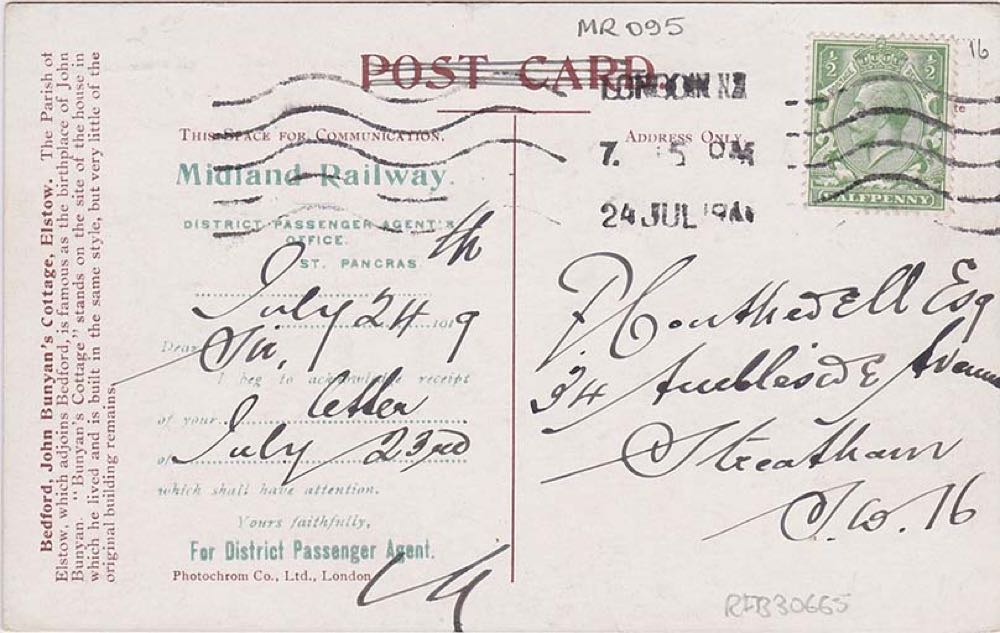 MR 095
16
POST CARD.
LONDON N.W
7. 15 PM
24 JUL 19
½ ½
HALFPENNY
THIS SPACE FOR COMMUNICATION.
ADDRESS ONLY.
Bedford, John Bunyan's Cottage, Elstow. The Parish of
Elstow, which adjoins Bedford, is famous as the birthplace of John
Bunyan. "Bunyan's Cottage" stands on the site of the house in
which he lived and is built in the same style, but very little of the
original building remains.
Midland Railway.
DISTRICT PASSENGER AGENT'S
OFFICE.
ST. PANCRAS
July 24th 1919
Dear Sir,
I beg to acknowledge receipt
of your letter
of July 23rd
which shall have attention.
Yours faithfully,
For District Passenger Agent.
Photochrom Co., Ltd., London
Esq
34 Ambleside Avenue
Streatham
S.W. 16
RFB30665